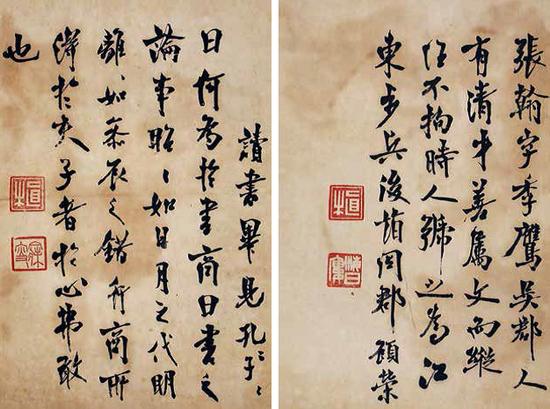 張翰字季鷹吳郡人
有清才善屬文而縱
任不拘時人號之為江
東步兵後謂同郡顧榮
讀書畢見孔〻子〻
曰何為於書商曰書之
論事昭〻如日月之代明
離〻如參辰之錯行商所
得於夫子者於心弗敢
也